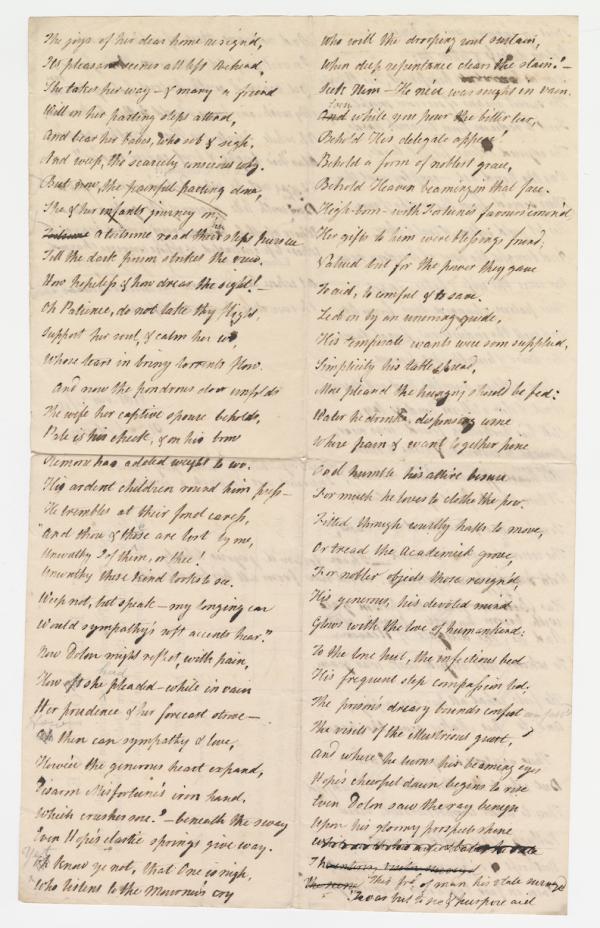 The joys of her dear home resign'd,
Its pleasant scenes all left behind,
She takes her way – & many a friend
Will on her parting steps attend,
And bear her babes, who sob & sigh,
And weep, tho' scarcely conscious why.
But now, the painful parting done,
She & her infants journey on,
A toilsome road their steps pursue
Till the dark prison strikes the view.
How hopeless & how drear the sight! –
Oh Patience, do not take thy flight,
Support her soul, & calm her wo,
Whose tears in briny torrents flow.
And now the pondrous door unfolds
The wife her captive spouse beholds,
Pale is his cheek, & on his brow
Remorse has added weight to wo.
His ardent children round him press –
He trembles at their fond caress,
"And thou & these are lost by me,
Unworthy I of them, or thee!
Unworthy these kind looks to see.
Weep not, but speak – my longing ear
Would sympathy's soft accents hear."
Now Dolon might reflect, with pain,
How oft she pleaded – while in vain
Her prudence & her forecast strove –
Ah then can sympathy & love,
Howe'er the generous heart expand,
Disarm Misfortune's iron hand,
Which crushes sore! – beneath the sway
Even Hope's elastic springs give way.
Ah know ye not, that One is nigh,
Who listens to the Mourner's cry
Who will the drooping soul sustain,
When deep repentance clears the stain! –
Seek Him – He ne'er was sought in vain.
Even while you pour the bitter tear,
Behold His delegate appear!
Behold a form of noblest grace,
Behold Heaven beaming in that face.
High-born – with Fortune's favours crown'd
Her gifts to him were blessings found,
Valued but for the power they gave
To aid, to comfort & to save.
Led on by an unerring guide,
His temperate wants were soon supplied,
Simplicity his table spread,
More pleas'd the hungry should be fed:
Water he drinks, dispensing wine
Where pain & want together pine
And humble his attire
For much he loves to clothe the poor.
Fitted through courtly halls to move,
Or tread the Academick grove,
For nobler objects these resign'd,
His generous, his devoted mind
Glows with the love of humankind:
To the lone hut, the infectious bed
His frequent step compassion led,
The prison's dreary bounds confest
The visits of the illustrious guest,
And where he turns his beaming eyes
Hope's cheerful dawn begins to rise
Even Dolon saw the ray benign
Upon his gloomy prospects shine
This frd. of man his state survey'd
'Twas but to see & purpose aid